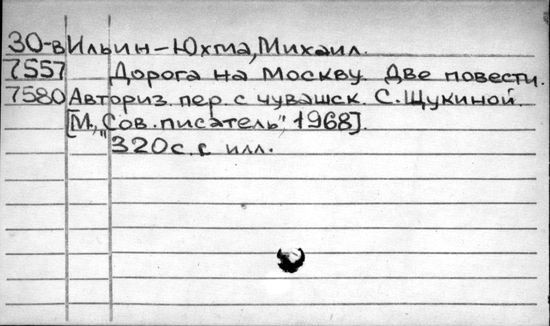 30-в Ильин-Юхма, Михаил.
7557 Дорога на Москву. Две повести.
7580 Авториз. пер. с чувашск. С. Щукиной.
[М., "Сов. писатель", 1968].
320 с. с илл.